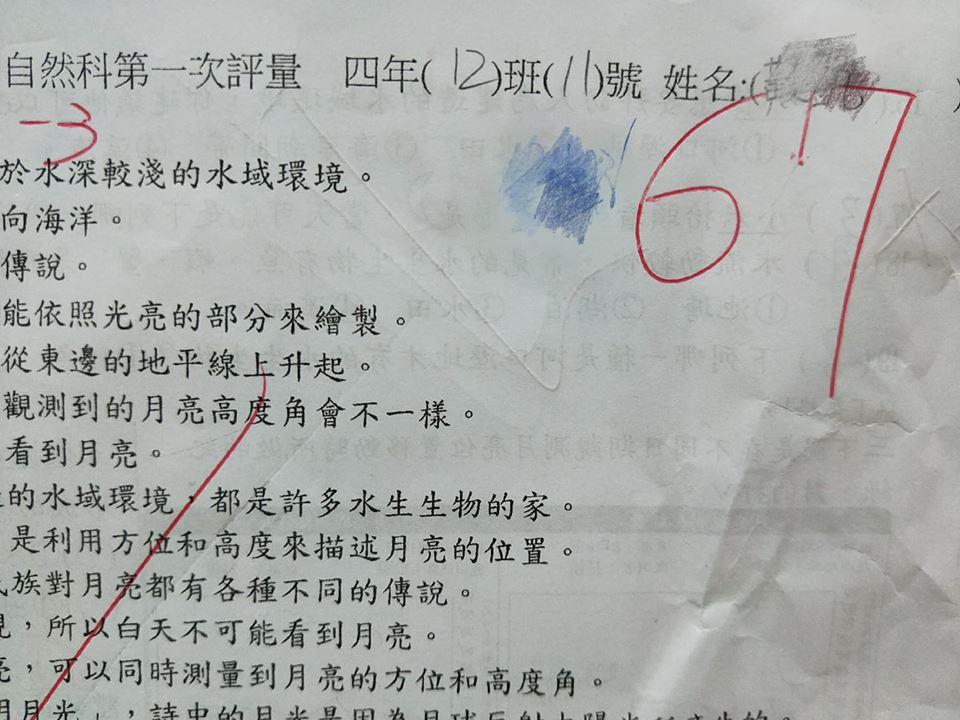 自然科第一次評量 四年(12)班(11)號 姓名:( )
-3
67
於水深較淺的水域環境。
向海洋。
傳說。
能依照光亮的部分來繪製。
從東邊的地平線上升起。
觀測到的月亮高度角會不一樣。
看到月亮。
的水域環境,都是許多水生生物的家。
是利用方位和高度來描述月亮的位置。
族對月亮都有各種不同的傳說。
見,所以白天不可能看到月亮。
亮,可以同時測量到月亮的方位和高度角。
明月光」,詩中的月光是因為月球反射太陽光所產生的。